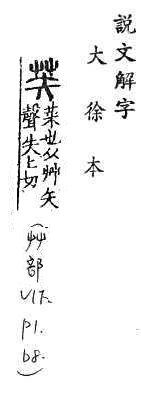 説文解字
大徐本
菜也从艸矢
聲失匕切
(艸部 V17. P1. b8.)